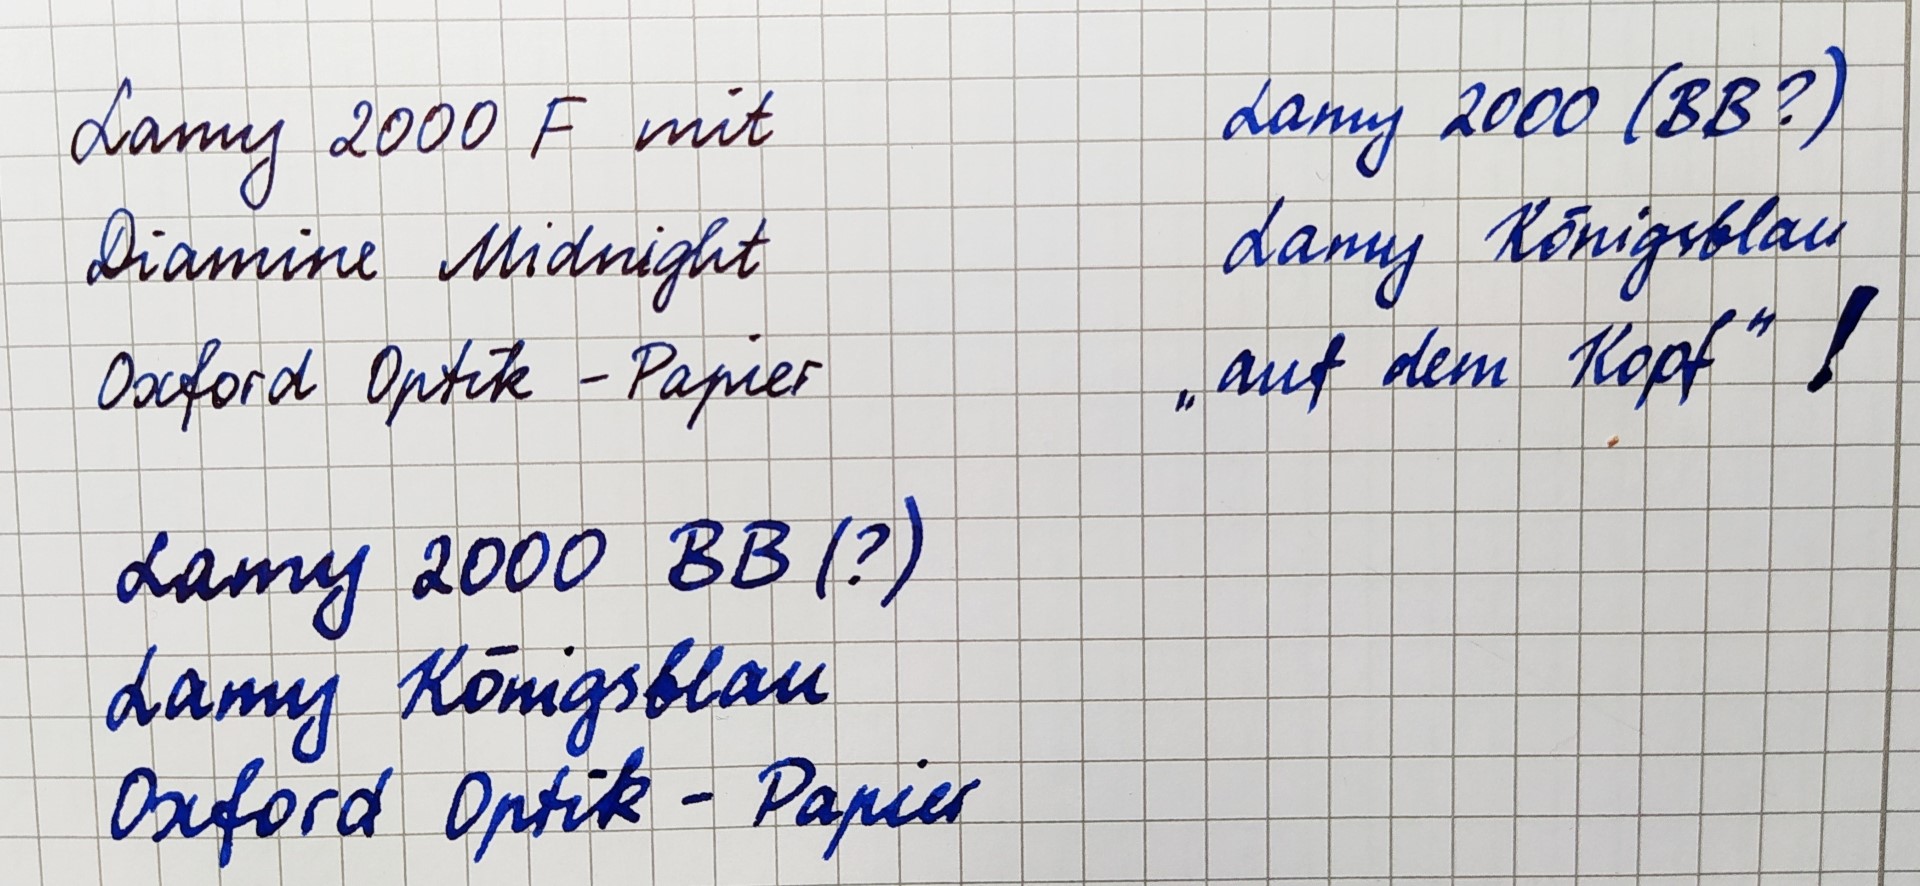 Lamy 2000 F mit
Diamine Midnight
Oxford Optik - Papier
Lamy 2000 (BB?)
Lamy Königsblau
„auf dem Kopf“!
Lamy 2000 BB (?)
Lamy Königsblau
Oxford Optik - Papier